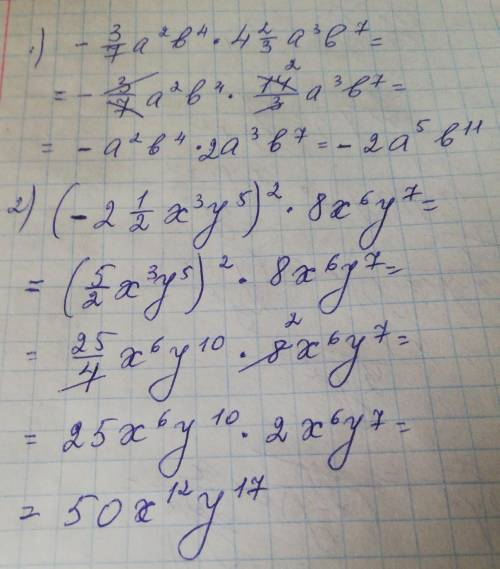 1) - 3/7 a² b⁴ · 4 2/3 a³ b⁷ =
= - 3/7 a² b⁴ · 14/3 ² a³ b⁷ =
= - a² b⁴ · 2a³ b⁷ = - 2a⁵ b¹¹
2) (- 2 1/2 x³y⁵)² · 8x⁶y⁷ =
= (5/2 x³y⁵)² · 8x⁶y⁷ =
= 25/4 x⁶y¹⁰ · 8² x⁶y⁷ =
= 25x⁶y¹⁰ · 2x⁶y⁷ =
= 50x¹²y¹⁷